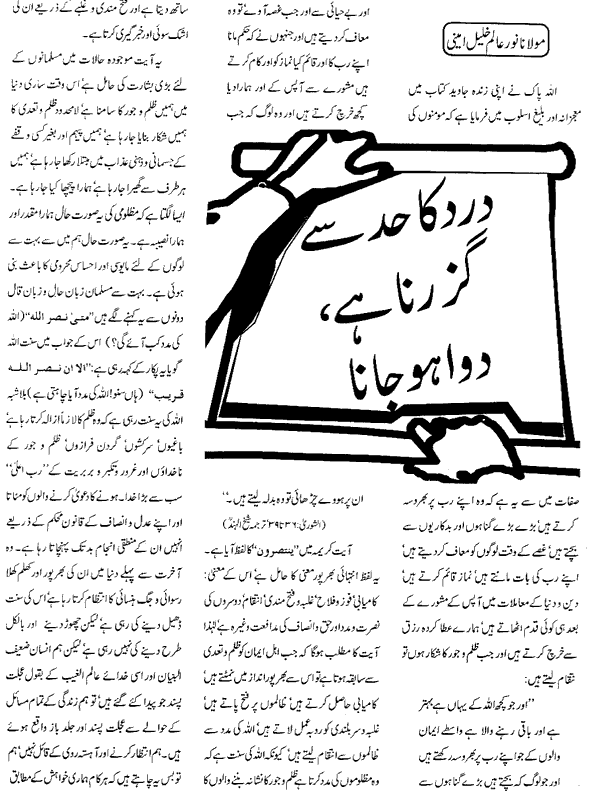 مولانا نور عالم خلیل امینی
اللہ پاک نے اپنی زندہ جاوید کتاب میں
معجزانہ اور بلیغ اسلوب میں فرمایا ہے کہ مومنوں کی
درد کا حد سے
گزرنا ہے،
دوا ہو جانا
صفات میں سے یہ ہے کہ وہ اپنے رب پر بھروسہ
کرتے ہیں' بڑے بڑے گناہوں اور بدکاریوں سے
بچتے ہیں' غصے کے وقت لوگوں کو معاف کردیتے ہیں'
اپنے رب کی بات مانتے ہیں' نماز قائم کرتے ہیں'
دین و دنیا کے معاملات میں آپس کے مشورے کے
بعد ہی کوئی قدم اٹھاتے ہیں' ہمارے عطا کردہ رزق
سے خرچ کرتے ہیں اور جب ظلم و جور کا شکار ہوں تو
انتقام لیتے ہیں:
"اور جو کچھ اللہ کے یہاں ہے بہتر
ہے اور باقی رہنے والا ہے واسطے ایمان
والوں کے جو اپنے رب پر بھروسہ رکھتے ہیں
اور جو لوگ کہ بچتے ہیں بڑے گناہوں سے
اور بے حیائی سے اور جب غصہ آوے' تو وہ
معاف کردیتے ہیں اور جنہوں نے کہ حکم مانا
اپنے رب کا اور قائم کیا نماز کو اور کام کرتے
ہیں مشورے سے آپس کے اور ہمارا دیا
کچھ خرچ کرتے ہیں اور وہ لوگ کہ جب
ان پر ہووے چڑھائی تو وہ بدلہ لیتے ہیں۔"
(الشوریٰ: ۳۶ تا ۳۹' ترجمہ شیخ الہندؒ)
آیت کریمہ میں "ینتصرون" کا لفظ آیا ہے۔
یہ لفظ انتہائی بھرپور معنی کا حامل ہے' اس کے معنی:
کامیابی' فوز و فلاح' غلبہ و فتح مندی' انتقام' دوسروں کی
نصرت و مدد اور حق و انصاف کی مدافعت وغیرہ ہے' لہٰذا
آیت کا مطلب ہوگا کہ جب اہل ایمان کو ظلم و تعدی
سے سابقہ ہوتا ہے تو اس سے بھرپور انداز میں نمٹتے ہیں'
کامیابی حاصل کرتے ہیں' ظالموں پر فتح پاتے ہیں'
غلبہ و سربلندی کو روبہ عمل لاتے ہیں' اللہ کی مدد سے
ظالموں سے انتقام لیتے ہیں' کیونکہ اللہ کی سنت ہے کہ
وہ مظلوموں کی مدد کرتا ہے' ظلم و جور کا نشانہ بننے والوں کا
ساتھ دیتا ہے اور فتح مندی و غلبے کے ذریعے ان کی
اشک سوئی اور خبر گیری کرتا ہے۔
یہ آیت موجودہ حالات میں مسلمانوں کے
لئے بڑی بشارت کی حامل ہے' اس وقت ساری دنیا
میں ہمیں ظلم و جور کا سامنا ہے' لامحدود ظلم و تعدی کا
ہمیں شکار بنایا جا رہا ہے' ہمیں پیہم اور بغیر کسی وقفے
کے جسمانی و ذہنی عذاب میں مبتلا رکھا جا رہا ہے' ہمیں
ہر طرف سے گھیرا جا رہا ہے' ہمارا پیچھا کیا جا رہا ہے۔
ایسا لگتا ہے کہ مظلومی کی یہ صورت حال ہمارا مقدر اور
ہمارا نصیبہ ہے۔ یہ صورت حال ہم میں سے بہت سے
لوگوں کے لئے مایوسی اور احساس محرومی کا باعث بنی
ہوئی ہے۔ بہت سے مسلمان زبان حال و زبان قال
دونوں سے یہ کہنے لگے ہیں "متیٰ نصر اللہ" (اللہ
کی مدد کب آئے گی؟) اس کے جواب میں سنت اللہ
گویا یہ پکار کے کہہ رہی ہے: "الا ان نصر اللہ
قریب" (ہاں سنو! اللہ کی مدد آیا چاہتی ہے) بلاشبہ
اللہ کی یہ سنت رہی ہے کہ وہ ظلم کا لازماً ازالہ کرتا رہا ہے'
باغیوں' سرکشوں' گردن فرازوں' ظلم و جور کے
ناخداؤں اور غرور و تکبر و بربریت کے "رب اعلیٰ"
سب سے بڑا خدا۔ ہونے کا دعویٰ کرنے والوں کو مٹاتا
اور اپنے عدل و انصاف کے قانون محکم کے ذریعے
انہیں ان کے منطقی انجام بد تک پہنچاتا رہا ہے۔ وہ
آخرت سے پہلے دنیا میں ان کی بھرپور اور کھلم کھلا
رسوائی و جگ ہنسائی کا انتظام کرتا رہا ہے' اس کی سنت
ڈھیل دینے کی رہی ہے' لیکن چھوڑ دینے اور بالکل
طرح دینے کی نہیں رہی ہے' لیکن ہم انسان ضعیف
البنیان اور اسی خدائے عالم الغیب کے بقول عجلت
پسند جو پیدا کئے گئے ہیں' تو ہم زندگی کے تمام مسائل
کے حوالے سے عجلت پسند اور جلد باز واقع ہوئے
ہیں۔ ہم انتظار کرنے اور آہستہ روی کے قائل نہیں' ہم
تو بس یہ چاہتے ہیں کہ ہر کام ہماری خواہش کے مطابق